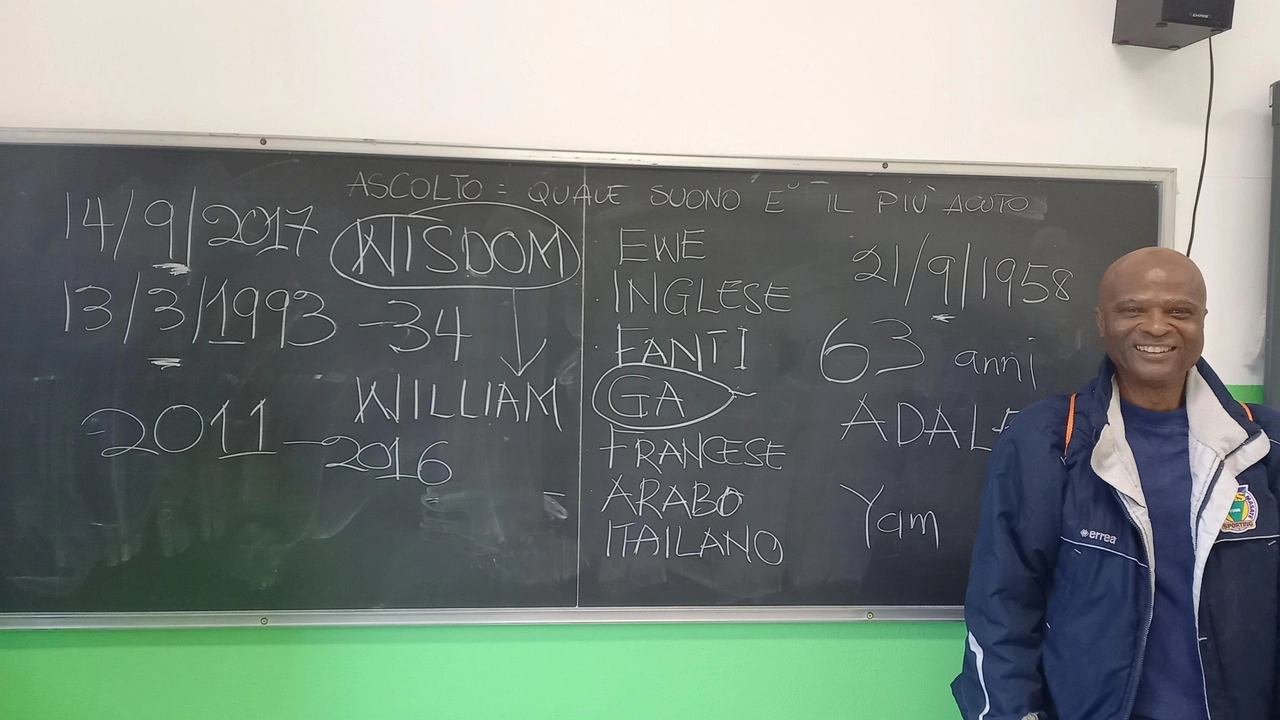 ASCOLTO: QUALE SUONO E' IL PIÙ ACUTO
14/9/2017
13/3/1993
2011-2016
WISDOM
-34
WILLIAM
EWE
INGLESE
FANTI
GA
FRANCESE
ARABO
ITAILANO
21/9/1958
63 anni
ADALE
Yam
errea
SPORTING
EMPIRE